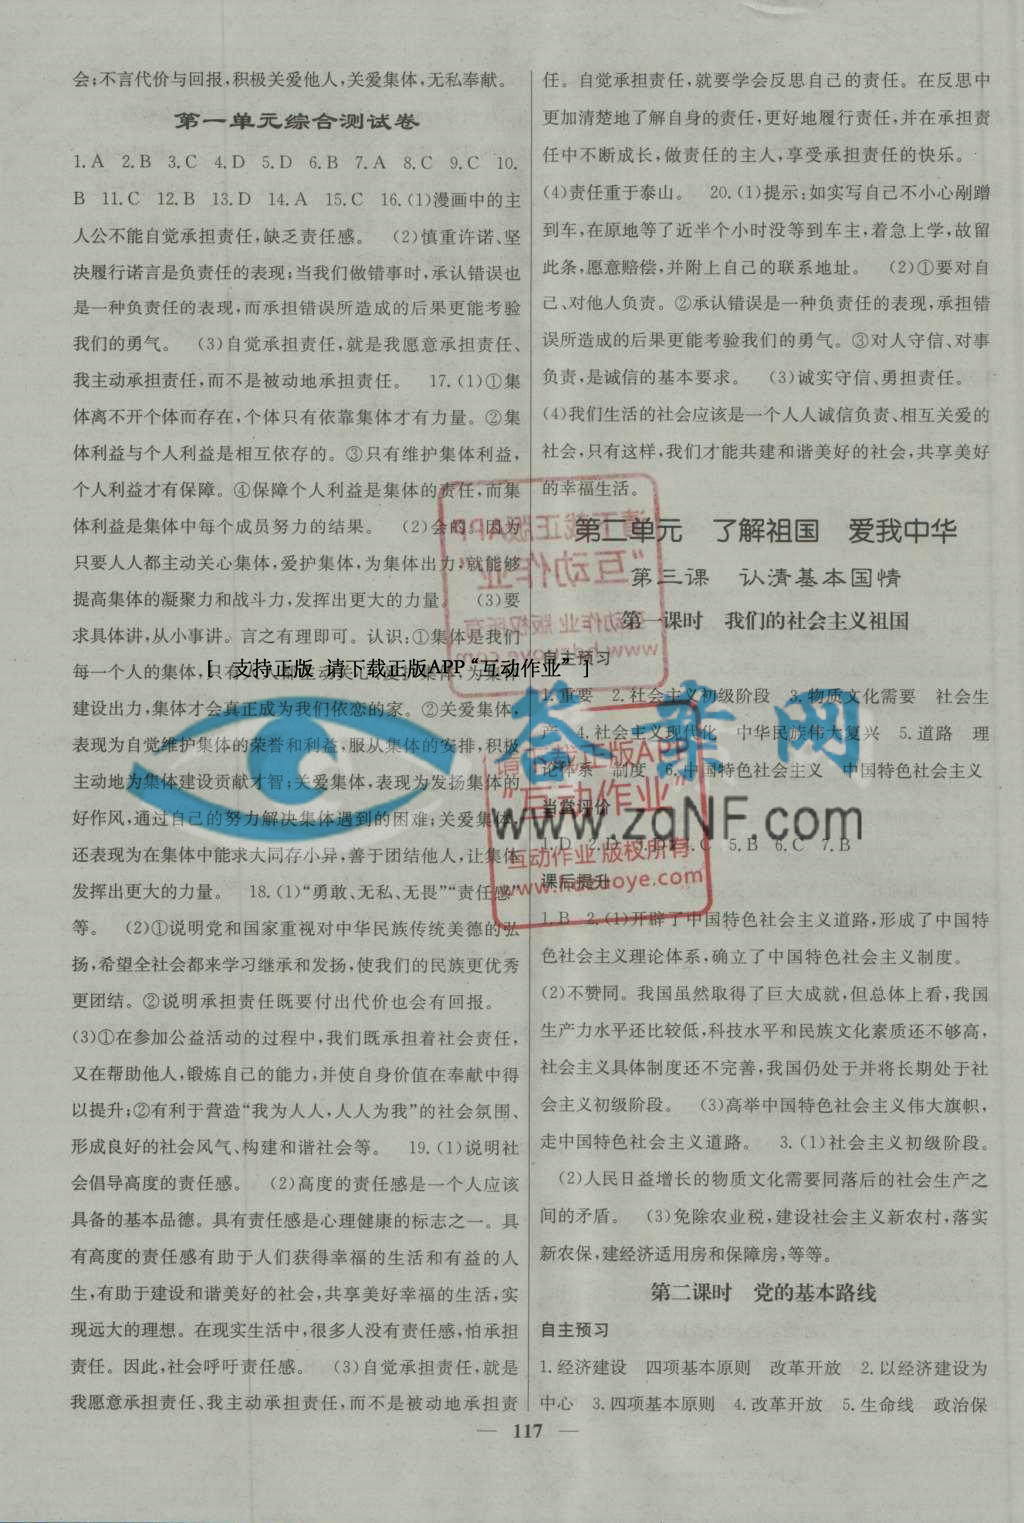 会;不言代价与回报,积极关爱他人,关爱集体,无私奉献。
第一单元综合测试卷
1.A 2.B 3.C 4.D 5.D 6.B 7.A 8.C 9.C 10.
B 11.C 12.B 13.D 14.A 15.C 16.(1)漫画中的主
人公不能自觉承担责任,缺乏责任感。 (2)慎重许诺、坚
决履行诺言是负责任的表现;当我们做错事时,承认错误也
是一种负责任的表现,而承担错误所造成的后果更能考验
我们的勇气。 (3)自觉承担责任,就是我愿意承担责任、
我主动承担责任,而不是被动地承担责任。 17.(1)①集
体离不开个体而存在,个体只有依靠集体才有力量。②集
体利益与个人利益是相互依存的。③只有维护集体利益,
个人利益才有保障。④保障个人利益是集体的责任,而集
体利益是集体中每个成员努力的结果。 (2)会的。因为
只要人人都主动关心集体,爱护集体,为集体出力,就能够
提高集体的凝聚力和战斗力,发挥出更大的力量。 (3)要
求具体讲,从小事讲。言之有理即可。认识:①集体是我们
每一个人的集体,只有
[ 支持正版 请下载正版APP“互动作业” ]
建设出力,集体才会真正成为我们依恋的家。②关爱集体,
表现为自觉维护集体的荣誉和利益,服从集体的安排,积极
主动地为集体建设贡献才智;关爱集体,表现为发扬集体的
好作风,通过自己的努力解决集体遇到的困难;关爱集体,
还表现为在集体中能求大同存小异,善于团结他人,让集体
发挥出更大的力量。 18.(1)“勇敢、无私、无畏”“责任感”
等。 (2)①说明党和国家重视对中华民族传统美德的弘
扬,希望全社会都来学习继承和发扬,使我们的民族更优秀
更团结。②说明承担责任既要付出代价也会有回报。
(3)①在参加公益活动的过程中,我们既承担着社会责任,
又在帮助他人,锻炼自己的能力,并使自身价值在奉献中得
以提升;②有利于营造“我为人人,人人为我”的社会氛围、
形成良好的社会风气、构建和谐社会等。 19.(1)说明社
会倡导高度的责任感。 (2)高度的责任感是一个人应该
具备的基本品德。具有责任感是心理健康的标志之一。具
有高度的责任感有助于人们获得幸福的生活和有益的人
生,有助于建设和谐美好的社会,共享美好幸福的生活,实
现远大的理想。在现实生活中,很多人没有责任感,怕承担
责任。因此,社会呼吁责任感。 (3)自觉承担责任,就是
我愿意承担责任、我主动承担责任,而不是被动地承担责
任。自觉承担责任,就要学会反思自己的责任。在反思中
更加清楚地了解自身的责任,更好地履行责任,并在承担责
任中不断成长,做责任的主人,享受承担责任的快乐。
(4)责任重于泰山。 20.(1)提示:如实写自己不小心剐蹭
到车,在原地等了近半个小时没等到车主,着急上学,故留
此条,愿意赔偿,并附上自己的联系地址。 (2)①要对自
己、对他人负责。②承认错误是一种负责任的表现,承担错
误所造成的后果更能考验我们的勇气。③对人守信、对事
负责,是诚信的基本要求。 (3)诚实守信、勇担责任。
(4)我们生活的社会应该是一个人人诚信负责、相互关爱的
社会,只有这样,我们才能共建和谐美好的社会,共享美好
的幸福生活。
第二单元 了解祖国 爱我中华
第三课 认清基本国情
第一课时 我们的社会主义祖国
自主预习
1.重要 2.社会主义初级阶段 3.物质文化需要 社会生
产 4.社会主义现代化 中华民族伟大复兴 5.道路 理
论体系 制度 6.中国特色社会主义 中国特色社会主义
当堂评价
1.D 2.B 3.D 4.C 5.B 6.C 7.B
课后提升
1.B 2.(1)开辟了中国特色社会主义道路,形成了中国特
色社会主义理论体系,确立了中国特色社会主义制度。
(2)不赞同。我国虽然取得了巨大成就,但总体上看,我国
生产力水平还比较低,科技水平和民族文化素质还不够高,
社会主义具体制度还不完善,我国仍处于并将长期处于社
会主义初级阶段。 (3)高举中国特色社会主义伟大旗帜,
走中国特色社会主义道路。 3.(1)社会主义初级阶段。
(2)人民日益增长的物质文化需要同落后的社会生产之
间的矛盾。 (3)免除农业税,建设社会主义新农村,落实
新农保,建经济适用房和保障房,等等。
第二课时 党的基本路线
自主预习
1.经济建设 四项基本原则 改革开放 2.以经济建设为
中心 3.四项基本原则 4.改革开放 5.生命线 政治保
— 117 —
请下载正版APP
“互动作业”
互动作业·版权所有
www.hdzuoye.com
www.zqNF.com